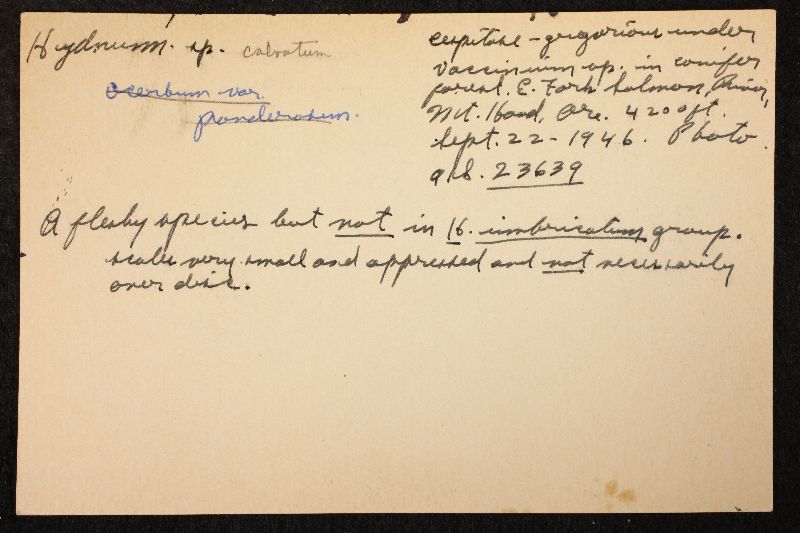 Hydnum. sp. calvatum
scerbum var.
ponderosum.
cespitose - gregarious under
vaccinium sp. in conifer
forest, E. Fork Salmon, River,
Mt. Hood, Ore. 4200 ft.
Sept. 22 - 1946. Photo.
a/s. 23639
A fleshy species but not in H. imbricatum group.
scales very small and appressed and not necessarily
over disc.